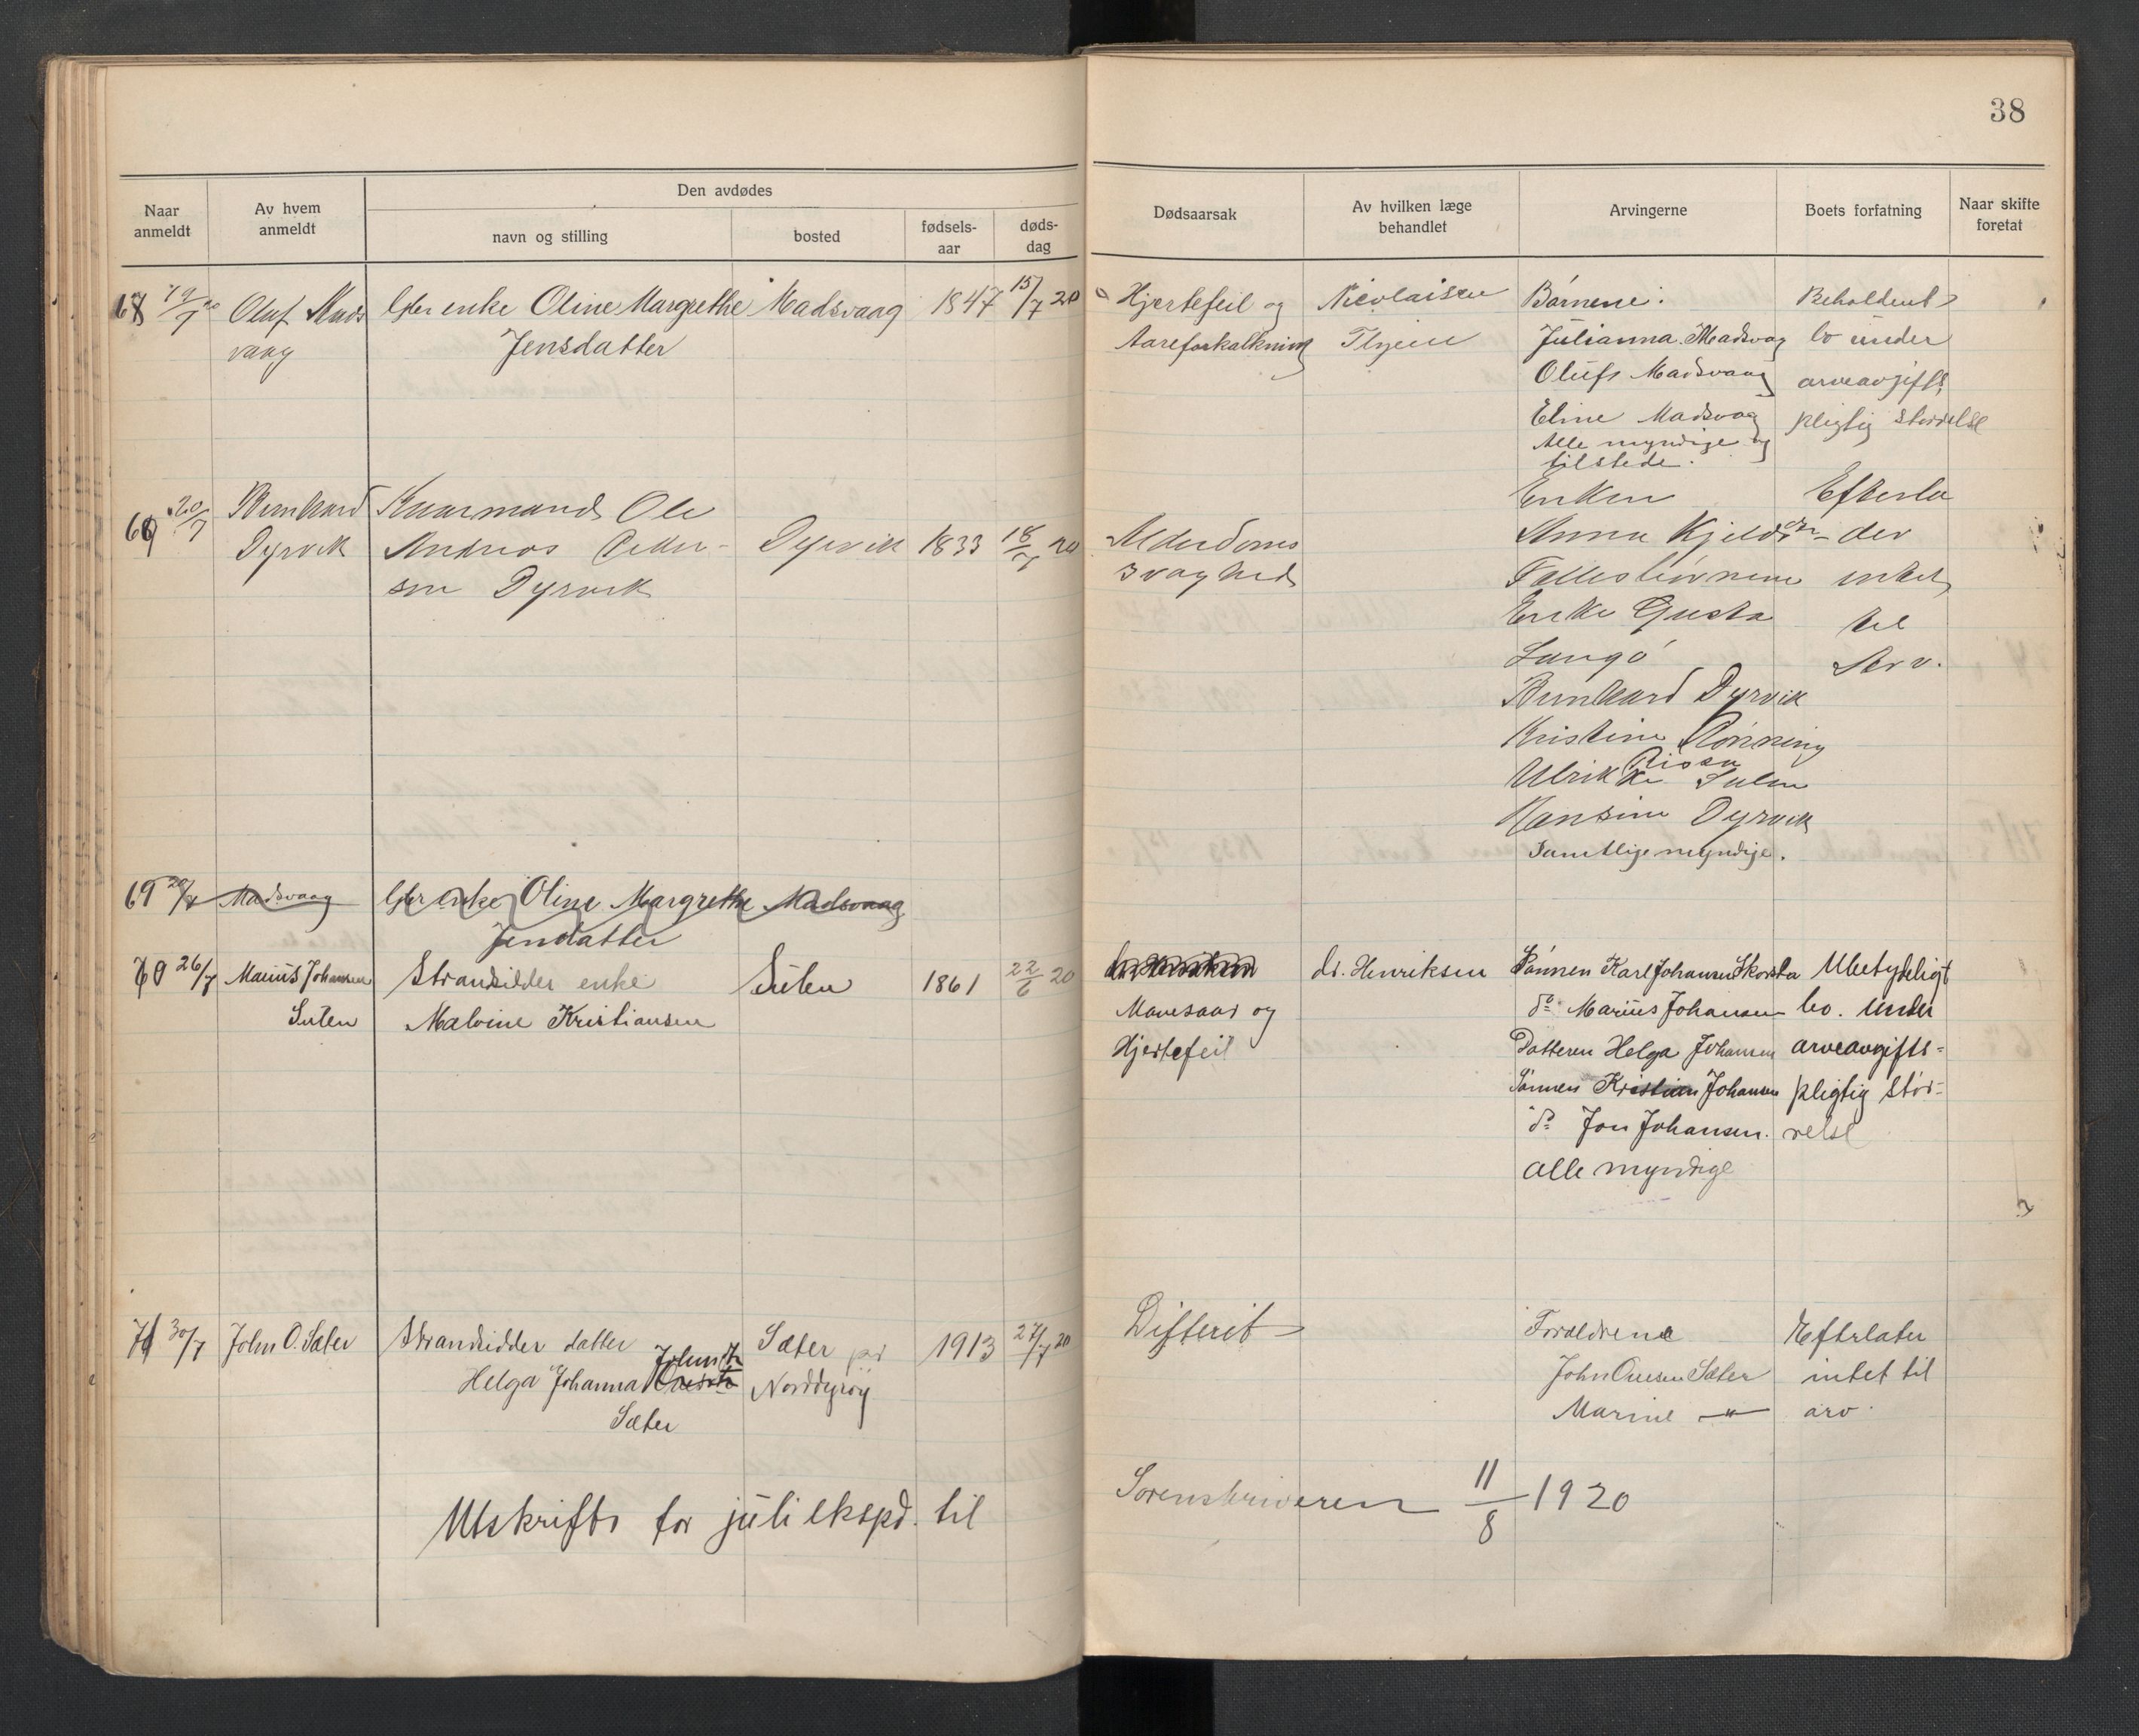 38
Naar anmeldt
Av hvem anmeldt
Den avdødes
navn og stilling
bosted
fødsels-aar
døds-dag
Dødsaarsak
Av hvilken læge behandlet
Arvingerne
Boets forfatning
Naar skifte foretat
19/7 20 Oluf Mads enke Oline Margrethe Madsvaag 1847 15/7 20 Hjertefeil og Nicolaisen Børnene: Beholdent
vaag Jensdatter Aareforkalkning Julianna Madsvag bo under
Olufs Madsvaag arveavgifts
Eline Madsvag pligtig størrelse
Alle myndige og
tilstede.
20/7 Bernhard Kaarmand Ole Enken Efterla
Dyrvik Andreas Peder- Dyrvik 1833 18/7 20 Alderdoms Anna Kjelds - der
sen Dyrvik svaghed intet
Enke Gusta til
Langø Arv.
Bernhard Dyrvik
Kristine Rønning
Rissa
Ulrikke Sulen
Hansine Dyrvik
Samtlige myndige.
69 20/7 Madsvaag enke Oline Margrethe Madsvaag
Jensdatter
70 26/7 Marius Johansen Strandsidder enke Sulen 1861 22/6 20 dr. Henriksen Sønnen Karl Johansen Skorsta Ubetydeligt
Sulen Malvine Kristiansen Mavesaar og do Marius Johansen bo. under
Hjertefeil Datteren Helga Johansen arveavgifts=
Sønnen Kristian Johansen pligtig stør=
do Jon Johansen. relse
alle myndige
71 30/7 John O. Sæter Strandsidder datter Sæter på 1913 27/7 20 Difterit Forældrene Efterlater
Johnsdtr
Helga Johanna Norddyrøy John Sæter intet til
Sæter Marine - " - arv.
Utskrifts for juli ekspd. til Sorenskriveren 11/8 1920